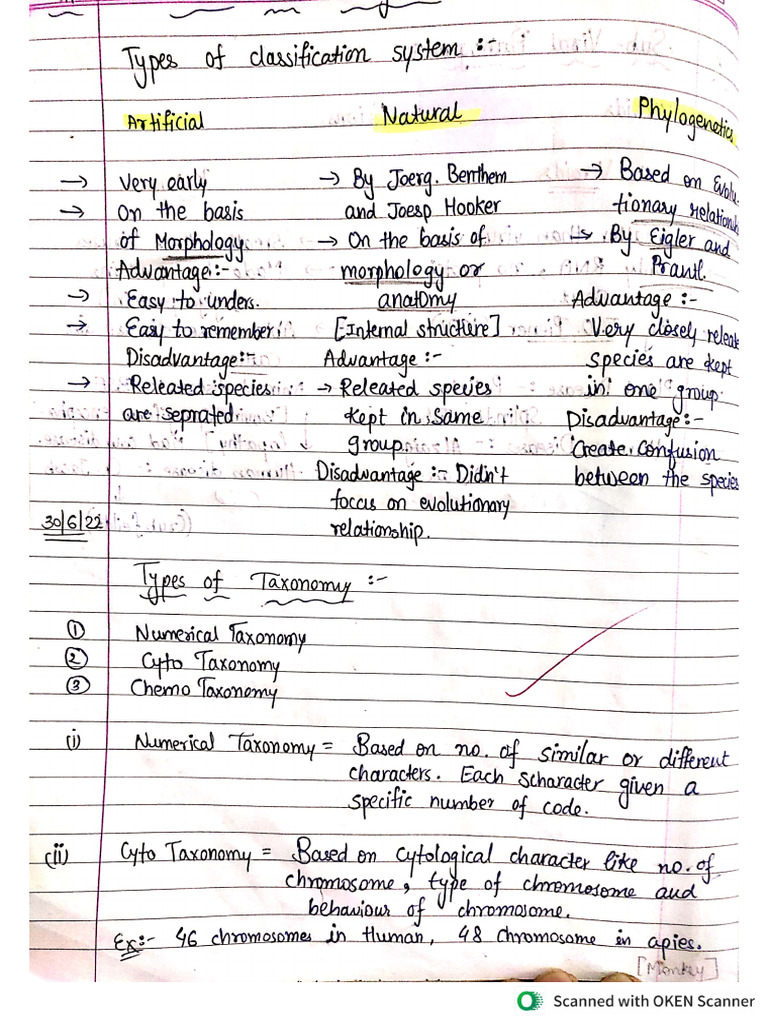 Types of classification system :-
Artificial
Natural
Phylogenetics
→ Very early
→ On the basis
of Morphology
Advantage:-
→ Easy to unders.
→ Easy to remember
Disadvantage:-
→ Releated species
are seprated
→ By Joerg. Benthem
and Joesp Hooker
→ On the basis of
morphology or
anatomy
[Internal structure]
Advantage :-
→ Releated species
kept in same
group.
Disadvantage :- Didn't
focus on evolutionary
relationship.
→ Based on Evolu-
tionary relationsh
→ By Eigler and
Prantl.
Advantage :-
Very closely releate
species are kept
in one group
Disadvantage:-
Create confusion
between the species
30/6/22
Types of Taxonomy :-
① Numerical Taxonomy
② Cyto Taxonomy
③ Chemo Taxonomy
(i) Numerical Taxonomy = Based on no. of similar or different
characters. Each scharacter given a
specific number of code.
(ii) Cyto Taxonomy = Based on cytological character like no. of
chromosome, type of chromosome and
behaviour of chromosome.
Ex:- 46 chromosomes in Human, 48 chromosome in apies.
[Monkey]
Scanned with OKEN Scanner